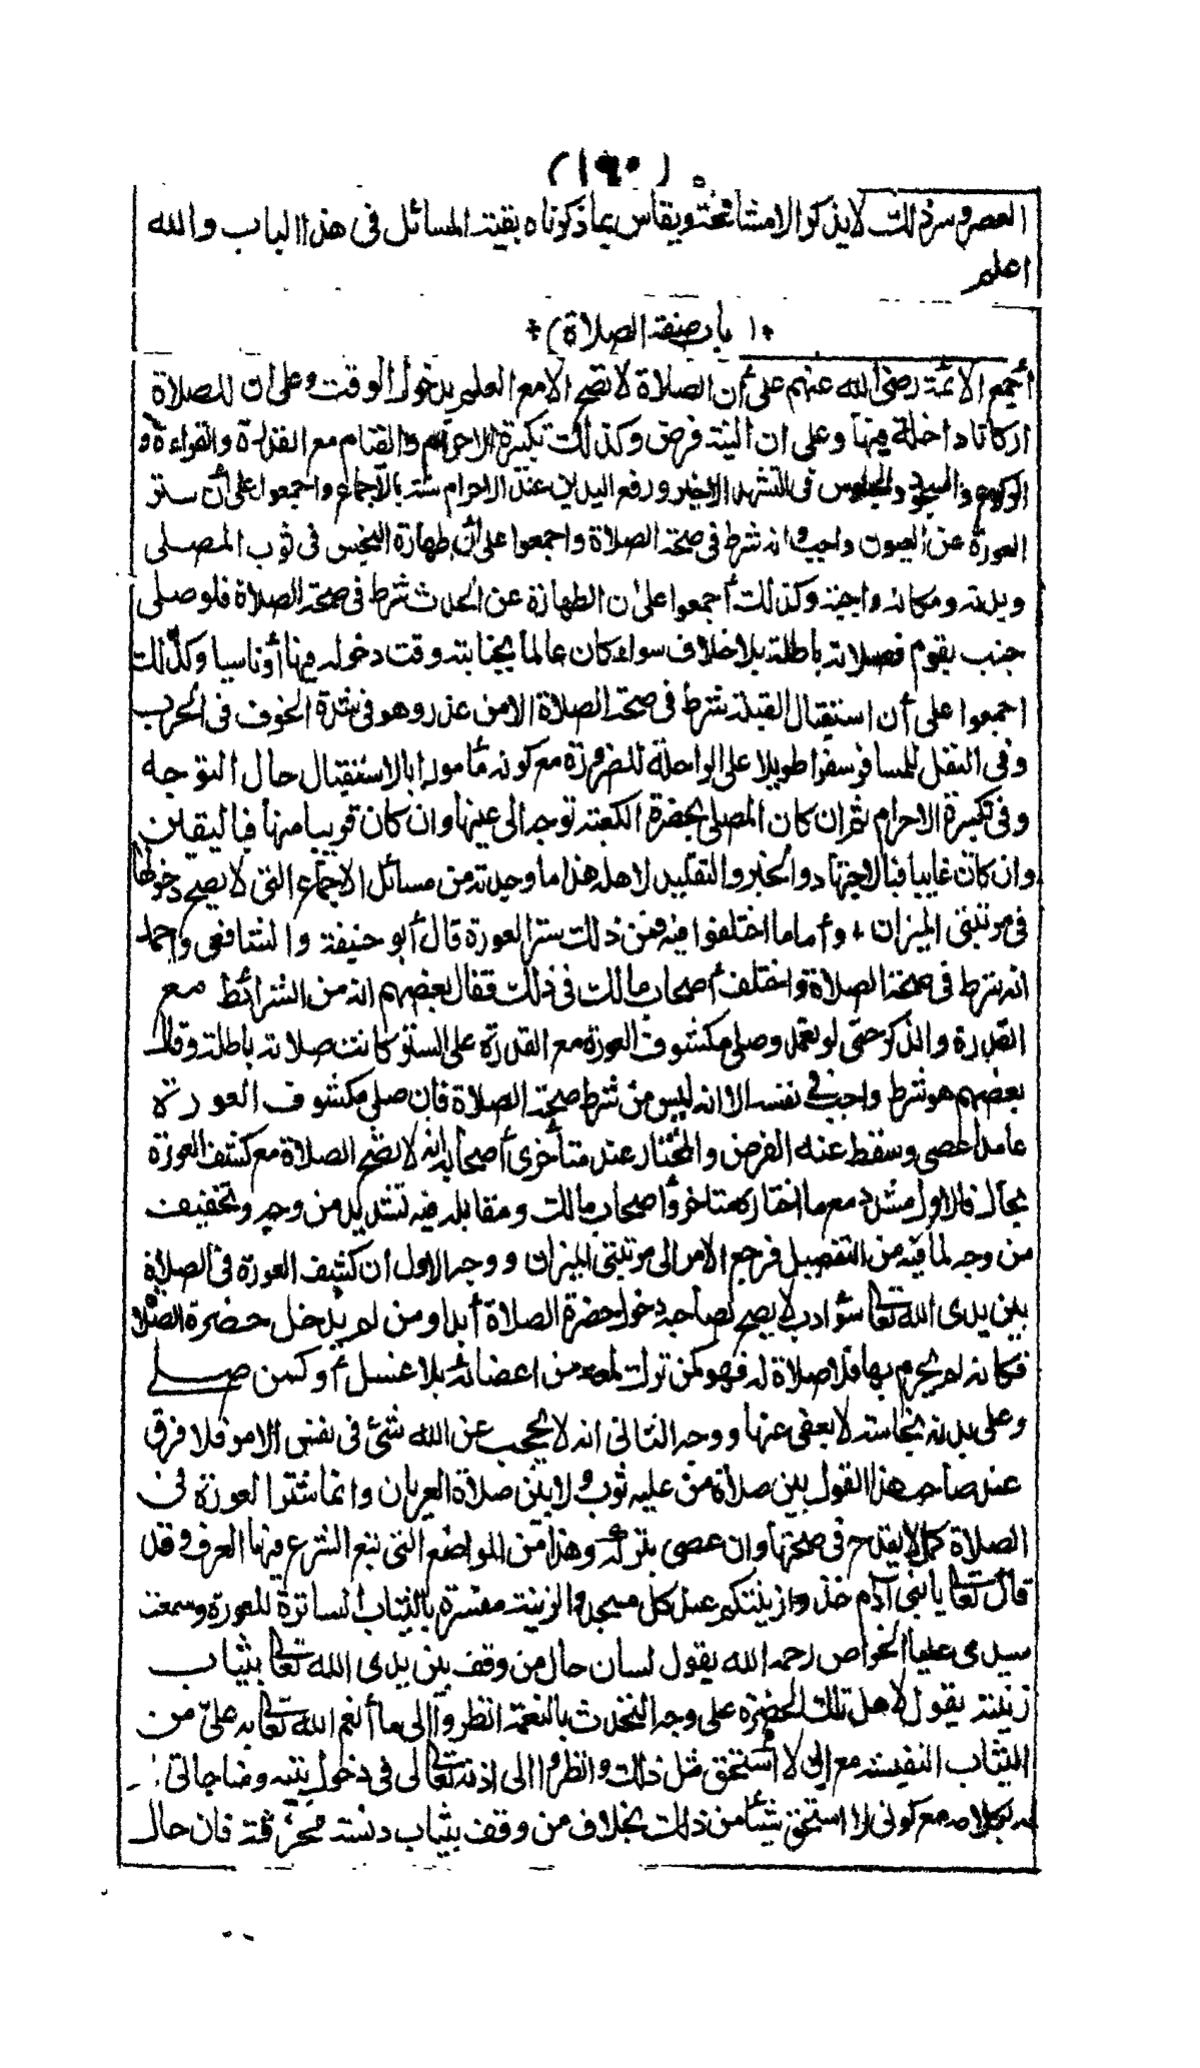 (١٩٠)
العصر وسر ذلك لا يذكر الا مشافهة ويقاس بما ذكرناه بقية المسائل فى هذا الباب والله
اعلم
*( باب صفة الصلاة )*
أجمع الائمة رضى الله عنهم على أن الصلاة لا تصح الا مع العلم بدخول الوقت وعلى ان للصلاة
اركانا داخلة فيها وعلى ان النية فرض وكذلك تكبيرة الاحرام والقيام مع القدرة والقراءة و
الركوع والسجود والجلوس فى التشهد الاخير ورفع اليدين عند الاحرام سنة بالاجماع واجمعوا على أن ستر
العورة عن العيون واجب وانه شرط فى صحة الصلاة واجمعوا على أن طهارة النجس فى ثوب المصلى
وبدنه ومكانه واجبة وكذلك أجمعوا على ان الطهارة عن الحدث شرط فى صحة الصلاة فلو صلى
جنب بقوم فصلاته باطلة بلا خلاف سواء كان عالما بجنابته وقت دخوله فيها أو ناسيا وكذلك
اجمعوا على أن استقبال القبلة شرط فى صحة الصلاة الا من عذر وهو فى شدة الخوف فى الحرب
وفى النفل للمسافر سفرا طويلا على الراحلة للضرورة مع كونه مأمورا بالاستقبال حال التوجه
وفى تكبيرة الاحرام ثم ان كان المصلى بحضرة الكعبة توجه الى عينها وان كان قريبا منها فباليقين
وان كان غايبا فبالاجتهاد والخبر والتقليد لاهله هذا ما وجدته من مسائل الاجماع التى لا يصح دخولها
فى مرتبتى الميزان * وأما ما اختلفوا فيه فمن ذلك ستر العورة قال أبو حنيفة والشافعى واحمد
انه شرط فى صحة الصلاة واختلف أصحاب مالك فى ذلك فقال بعضهم انه من الشرائط مع
القدرة والذكر حتى لو تعمد وصلى مكشوف العورة مع القدرة على الستر كانت صلاته باطلة وقال
بعضهم هو شرط واجب فى نفسه الا انه ليس من شرط صحة الصلاة فان صلى مكشوف العورة
عامدا عصى وسقط عنه الفرض والمختار عند متأخرى أصحابه انه لا تصح الصلاة مع كشف العورة
بحال فالاول مشدد مع ما اختاره متاخرو أصحاب مالك ومقابله فيه تشديد من وجه وتخفيف
من وجه لما فيه من التفصيل فرجع الامر الى مرتبتى الميزان ووجه الاول أن كشف العورة فى الصلاة
بين يدى الله تعالى سوء ادب لا يصح لصاحبه دخول حضرة الصلاة أبدا ومن لم يدخل حضرة الصلاة
فكانه لم يحرم بها فلا صلاة له فهو كمن ترك لمعة من اعضائه بلا غسل أو كمن صلى
وعلى بدنه نجاسة لا يعفى عنها ووجه الثانى انه لا يحجب عن الله شئ فى نفس الامر فلا فرق
عند صاحب هذا القول بين صلاة من عليه ثوب ولا بين صلاة العريان وانما ستر العورة فى
الصلاة كمال لا يقدح فى صحتها وان عصى بتركه وهذا من المواضع التى تبع الشرع فيها العرف وقد
قال تعالى يا بنى آدم خذوا زينتكم عند كل مسجد والزينة مفسرة بالثياب الساترة للعورة وسمعت
سيدى عليا الخواص رحمه الله يقول لسان حال من وقف بين يدى الله تعالى بثياب
زينته يقول لاهل تلك الحضرة على وجه التحدث بالنعمة انظروا الى ما أنعم الله تعالى به علىّ من
الثياب النفيسة مع انى لا أستحق مثل ذلك وانظروا الى اذنه تعالى لى فى دخول بيته ومناجاتى
له بكلامه مع كونى لا استحق شيئا من ذلك بخلاف من وقف بثياب دنسة مخرقة فان حال